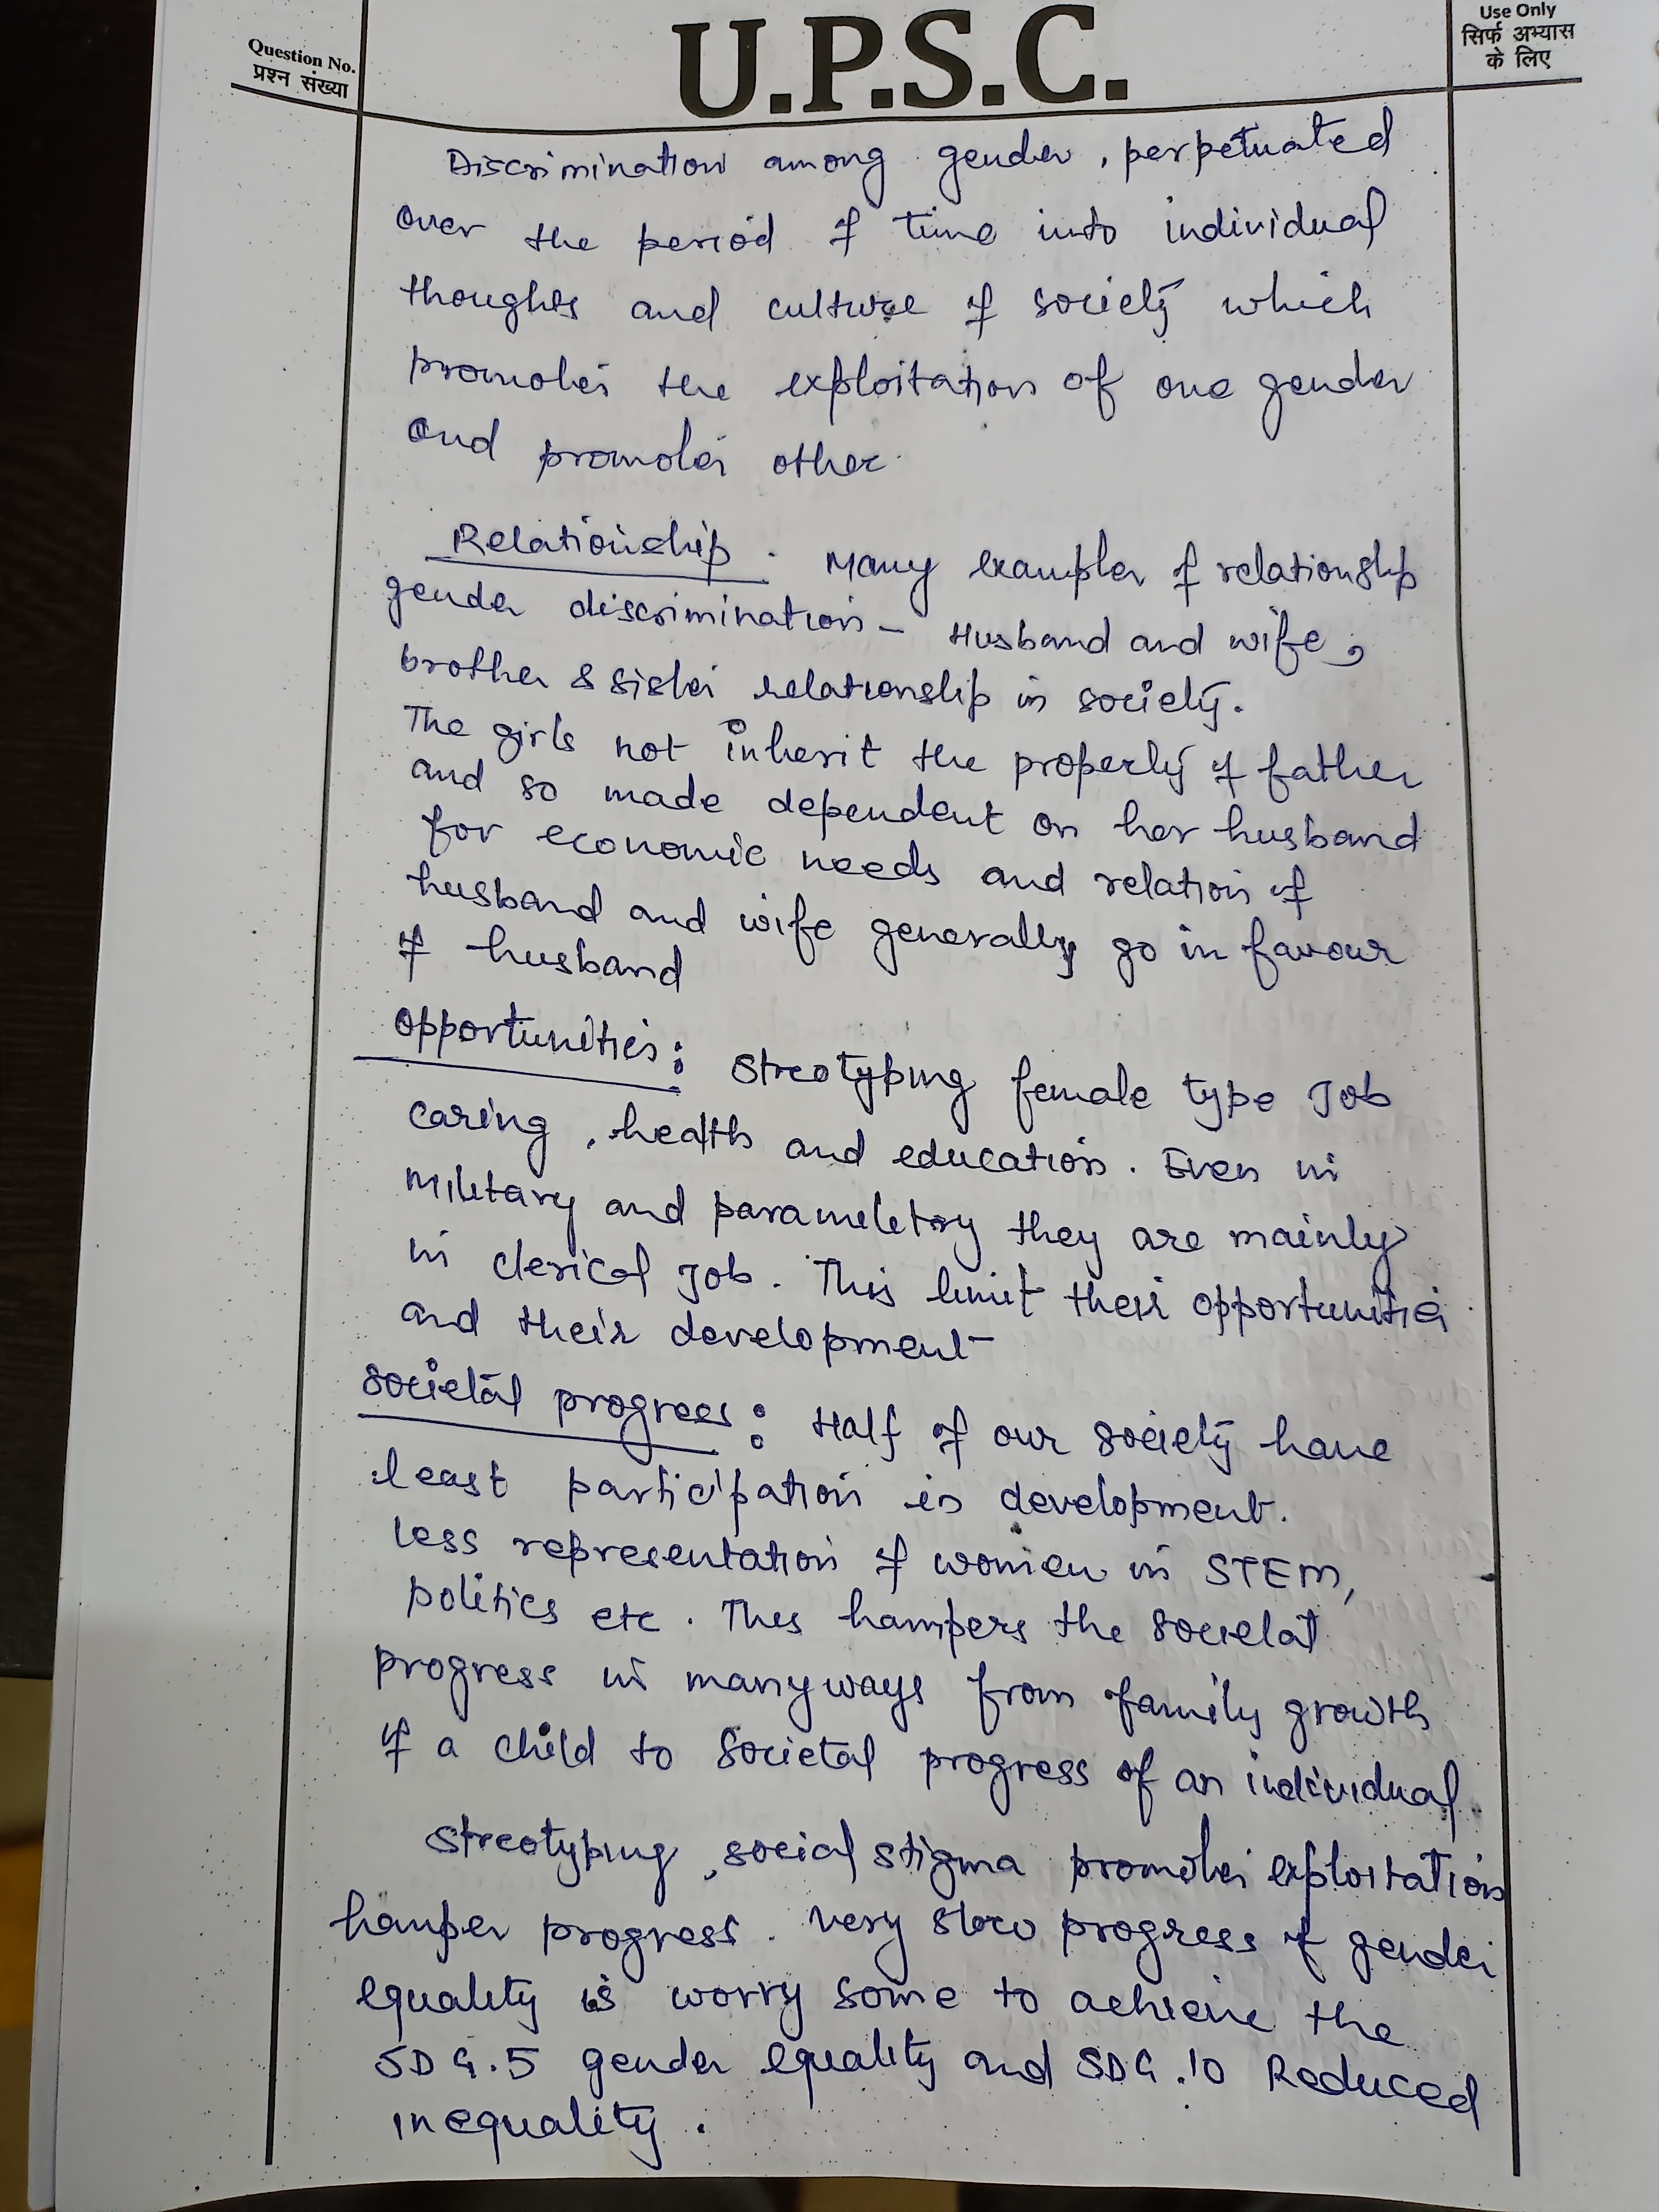 Question No.
प्रश्न संख्या
U.P.S.C.
Use Only
सिर्फ अभ्यास
के लिए
Discrimination among gender, perpetuated
over the period of time into individual
thoughts and culture of society which
promotes the exploitation of one gender
and promotes other.
Relationship . Many examples of relationship
gender discrimination - Husband and wife,
brother & sister relationship in society.
The girls not inherit the property of father
and so made dependent on her husband
for economic needs and relation of
husband and wife generally go in favour
of husband
Opportunities: Streotyping female type Job
caring, health and education. Even in
military and parameletry they are mainly
in clerical Job. This limit their opportunities
and their development
Societal progress: Half of our society have
least participation in development.
Less representation of women in STEM,
politics etc. Thes hampers the societal
progress in many ways from family growth
of a child to societal progress of an individual.
Streotyping, social stigma promotes exploitation
hamper progress. Very slow progress of gender
equality is worry some to achieve the
SDG.5 gender equality and SDG.10 Reduced
inequality.